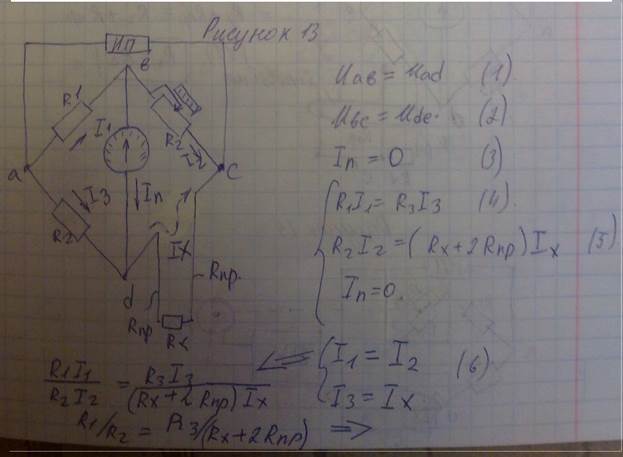 Рисунок 13
ИП
в
R1
I1
R2
I2
а
C
I3
In
R2
Ix
d
Rпр.
Rпр
Rx
Uав = Uad (1)
Uвс = Udc. (2)
In = 0 (3)
R1I1 = R3I3 (4).
R2I2 = (Rx+2Rпр)Ix (5)
In=0.
I1 = I2 (6)
I3 = Ix
R1I1 / R2I2 = R3I3 / (Rx+2Rпр)Ix
R1/R2 = R3/(Rx+2Rпр) ⇒